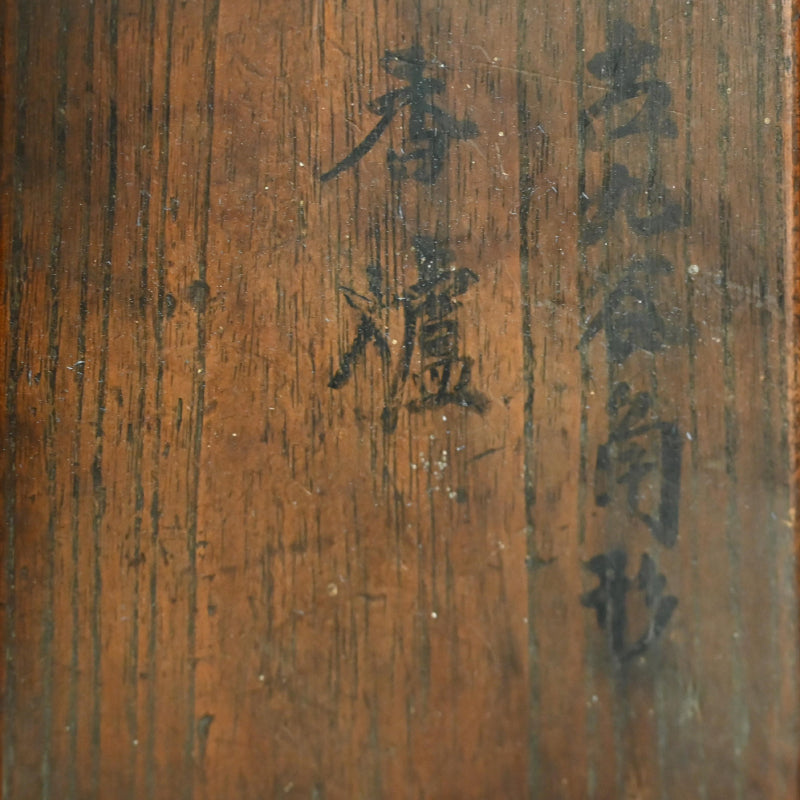 古九谷角形
香爐